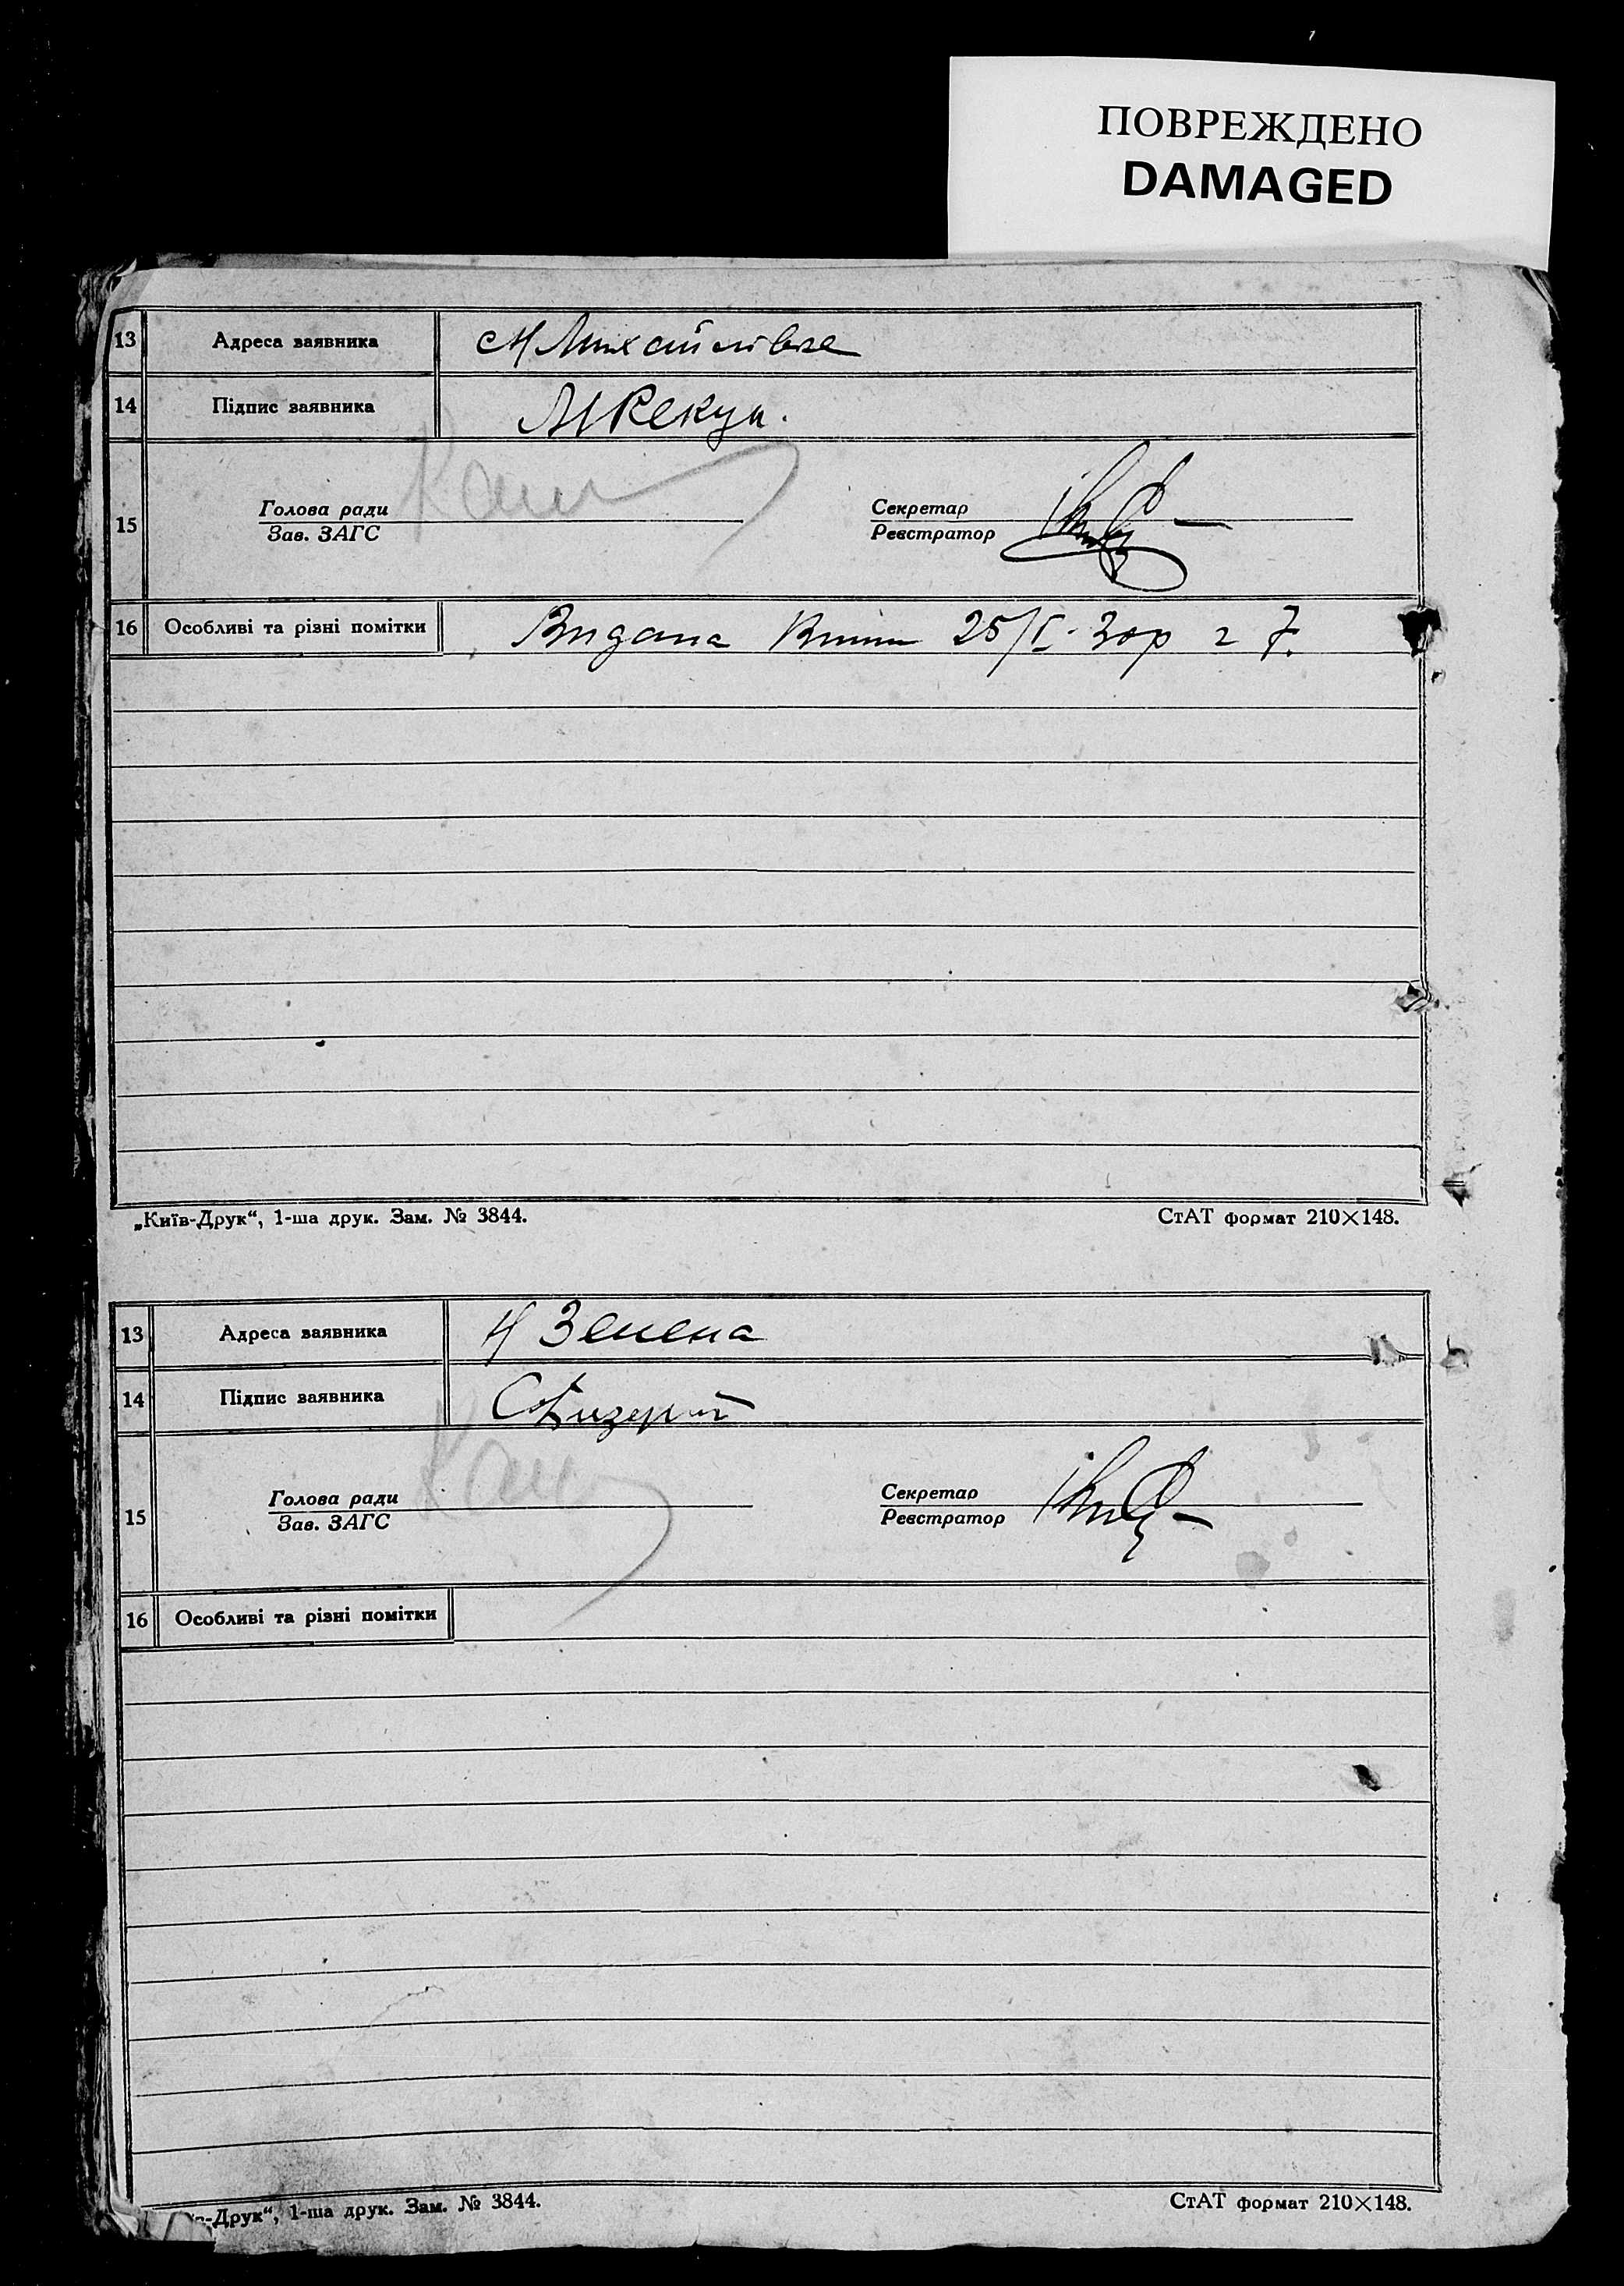 ПОВРЕЖДЕНО
DAMAGED
13 Адреса заявника Михайлівка
14 Підпис заявника
Голова ради Секретар
15
Зав. ЗАГС Реєстратор
16 Особливі та різні помітки Видана 25/I-30р
„Київ-Друк“, 1-ша друк. Зам. № 3844. СтАТ формат 210×148.
13 Адреса заявника
14 Підпис заявника
Голова ради Секретар
15
Зав. ЗАГС Реєстратор
16 Особливі та різні помітки
в-Друк“, 1-ша друк. Зам. № 3844. СтАТ формат 210×148.